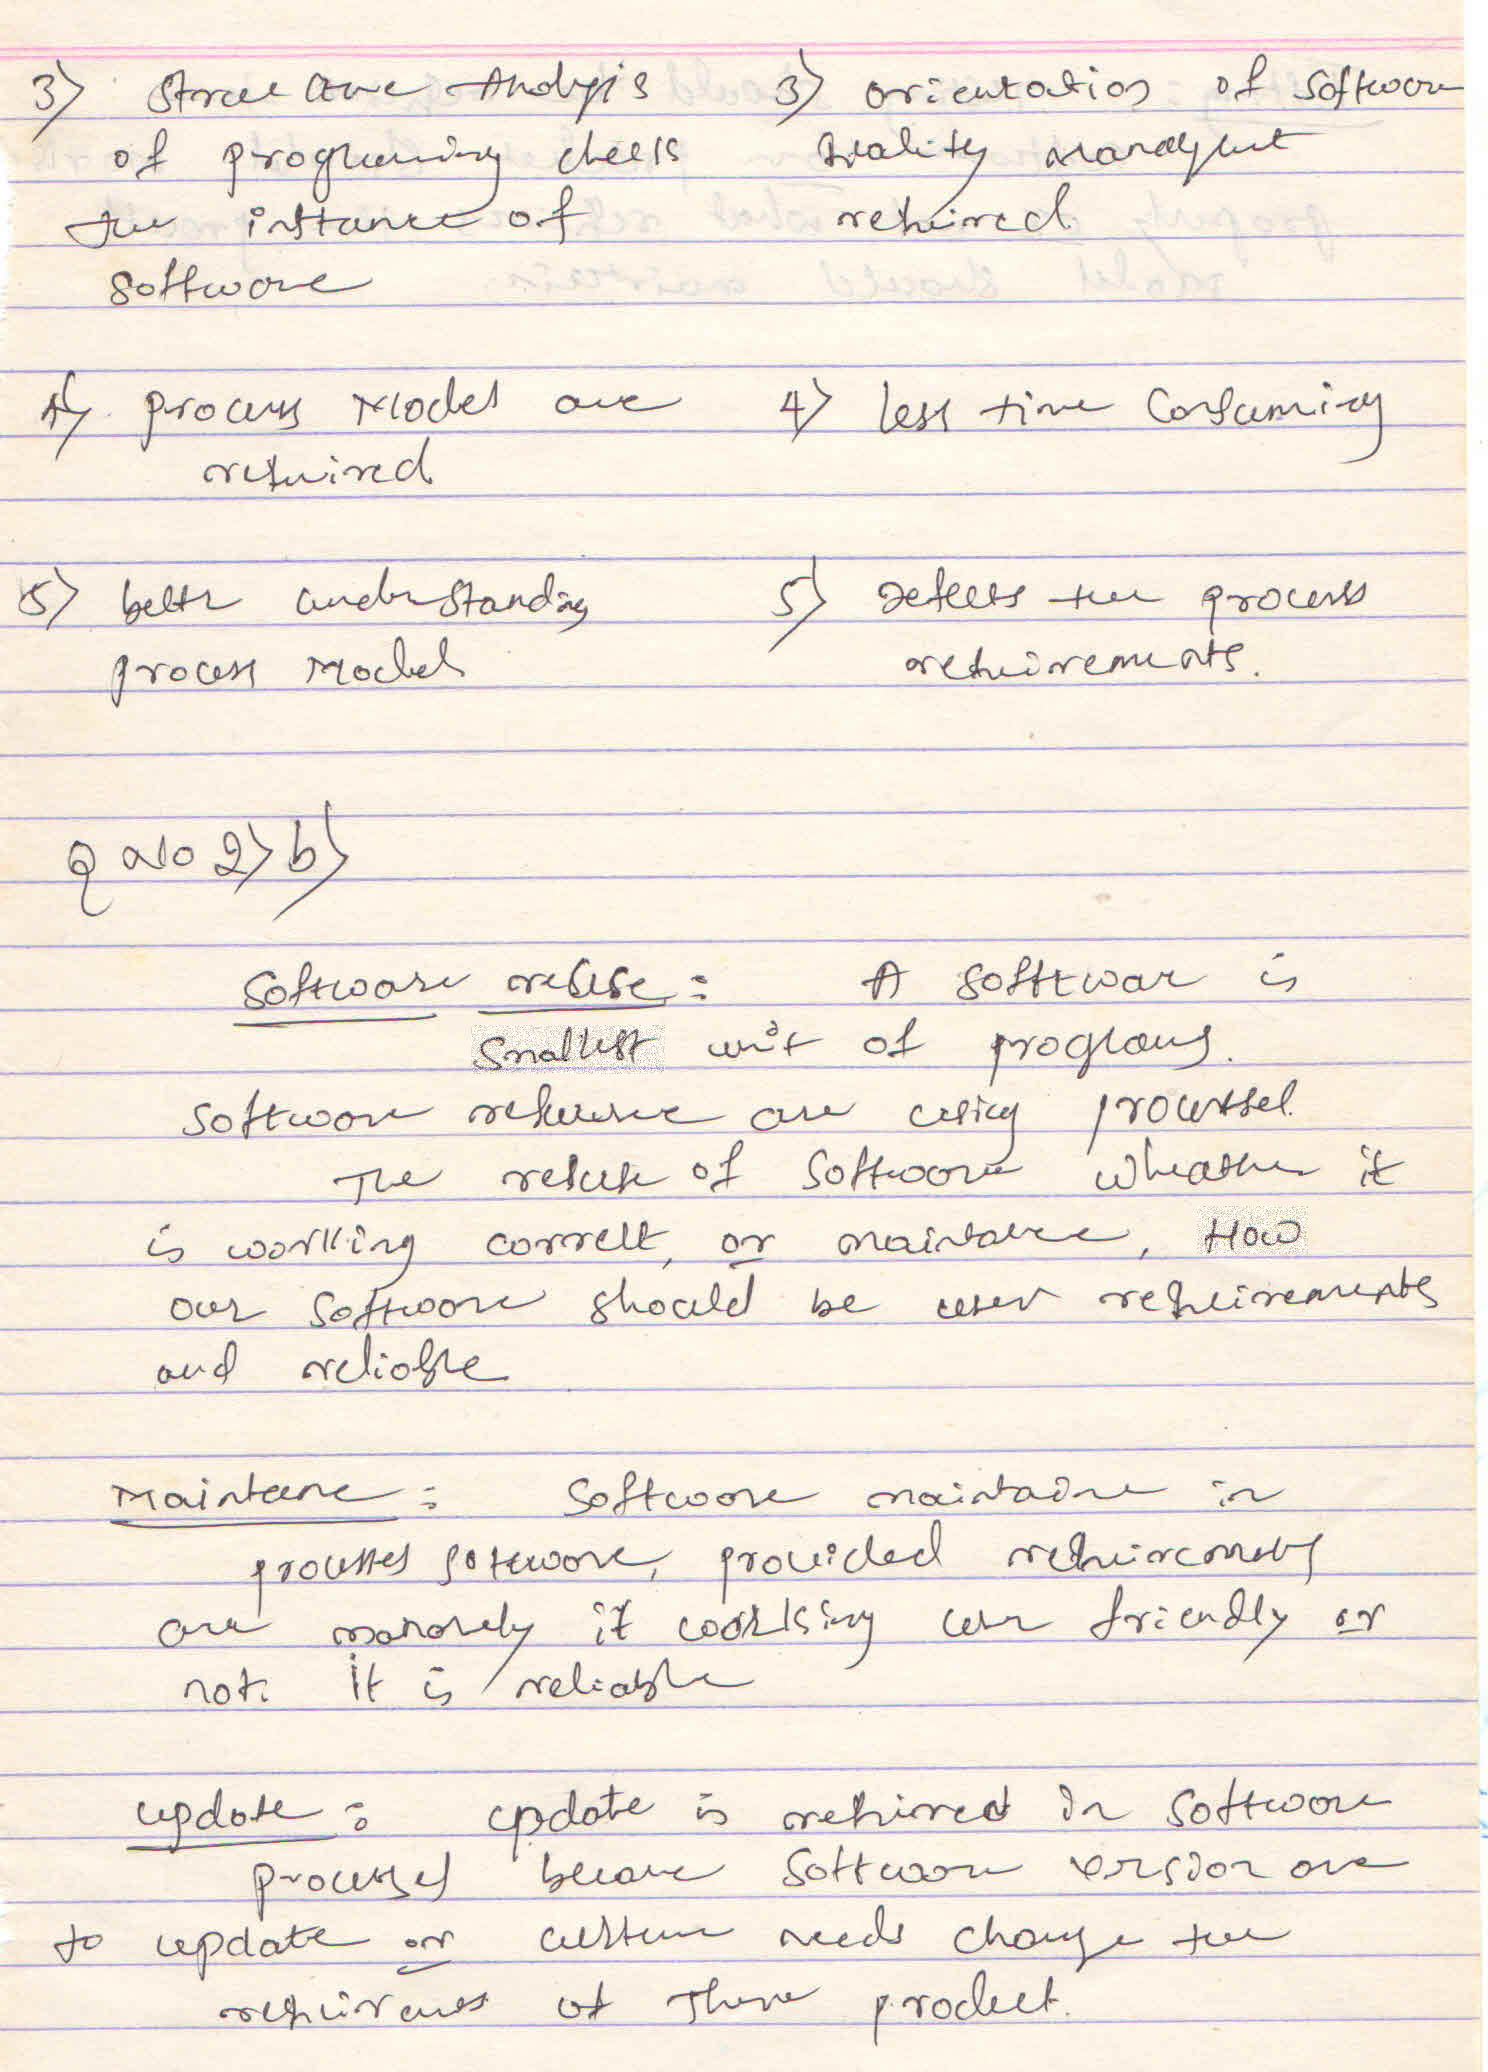 3) Structure Analysis
of programing checks
the instance of
software
3) orientation of software
quality managment
required
4) process Model are
required
4) less time Consuming
5) better understanding
process Model
5) Defects the process
requirements.
Q No 2) b)
Software reuse : A softwar is
Smallest unit of programs.
Software are using processes.
The reuse of Software wheather it
is working correct, or maintaince, How
our Software should be user requirements
and reliable
Maintance : Software maintaine in
processes software, provided requirements
are it working user friendly or
not. It is reliable
update : update is required in Software
processes because Software version are
to update or custumer needs change the
requirements of There product.